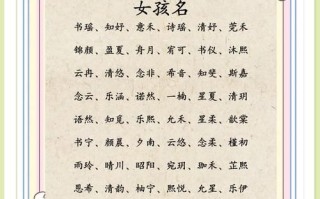 女孩名
书瑶、知妤、意禾、诗瑶、清妤、莞禾
锦颜、盈夏、舟月、宥可、书仪、沐熙
云冉、清悠、念非、希音、知斐、斯嘉
念云、乐涵、诺然、一楠、星夏、清玥
语然、知觅、乐熙、九禾、星柔、歆棠
书宁、颜晨、夕南、云悠、念柔、槿初
雨玲、晴川、昭阳、宛玥、珈禾、芷熙
恩希、清韵、柚宁、熙悦、九星、乐伊